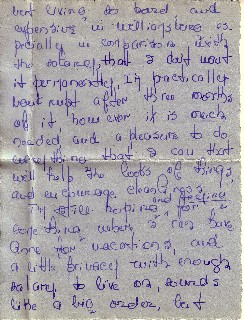 but living, so board and
expensive in wellingtone es-
pecially in comparison with
the salary, that I don't want
it permanently. I'm practically
bankrupt after three months
of it however it is much
needed and a pleasure to do
something that I can that
will help the looks of things,
and encourage cleanliness
I'm still hoping for
something where I can have
Anne for vacations, and
a little privacy with enough
salary to live on, sounds
like a big order, but